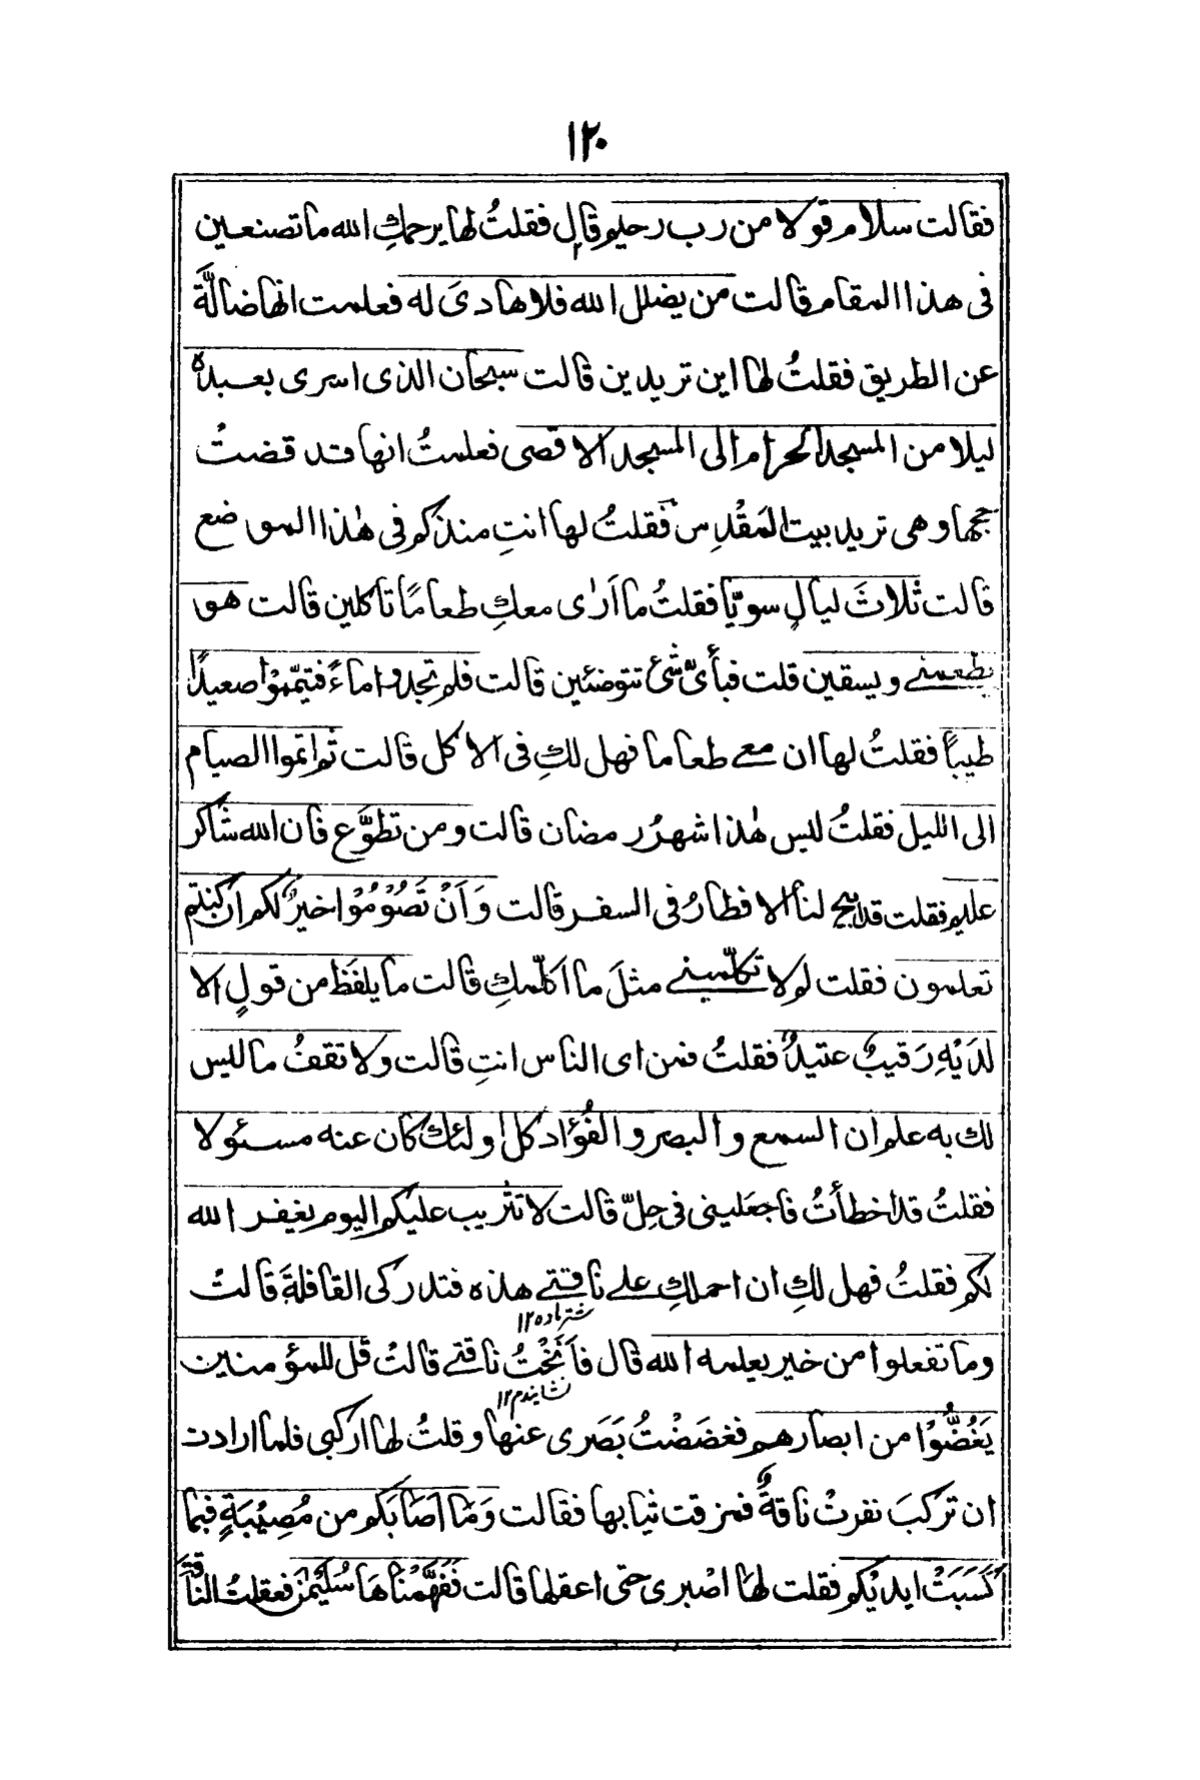 ١٢٠
فقالت سلام قولا من رب رحيم قال فقلتُ لها يرحمكِ الله ما تصنعين
فى هذا المقام قالت من يضلل الله فلا هادىَ له فعلمت انها ضالَّة
عن الطريق فقلتُ لها اين تريدين قالت سبحان الذى اسرى بعبده
ليلا من المسجد الحرام الى المسجد الاقصى فعلمتُ انها قد قضتْ
حجها وهى تريد بيت المَقْدِس فقلتُ لها انتِ منذ كم فى هٰذا الموضع
قالت ثلاثَ ليالٍ سويّا فقلتُ ما اَرٰى معكِ طعامًا تاكلين قالت هو
يطعمنے ويسقين قلت فبأىّ شئ تتوضئين قالت فلم تجدوا ماءً فتيمّموْا صعيدًا
طيباً فقلتُ لها ان معے طعاما فهل لكِ فى الاكل قالت ثم اتموا الصيام
الى الليل فقلتُ ليس هٰذا شهرُ رمضان قالت ومن تطوَّع فان الله شاكر
عليم فقلت قد ابيح لنا الافطارُ فى السفر قالت وَاَنْ تَصُوْمُوْا خيرٌ لكم ان كنتم
تعلمون فقلت لولا تكلّمينے مثلَ ما اكلّمكِ قالت ما يلفَظ من قولٍ الا
لدَيْهِ رَقيبٌ عتيدٌ فقلتُ فمن اى الناس انتِ قالت ولا تقفُ ما ليس
لك به علم ان السمع والبصر والفُؤاد كل اولئك كان عنه مسئولا
فقلتُ قد اخطأتُ فاجعلينى فى حِلّ قالت لا تثريب عليكم اليوم يغفر الله
لكم فقلتُ فهل لكِ ان احملكِ علے ناقتے هذه فتدركى القافلةَ قالتْ
شتر ماده ١٢
وما تفعلوا من خير يعلمه الله قال فاَنَخْتُ ناقتے قالتْ قل للمؤمنين
نشاندم ١٢
يَغُضُّوْا من ابصارهم فغضَضْتُ بَصَرى عنها وقلتُ لها اركبى فلما ارادت
ان تركبَ نفرتْ ناقةٌ فمزقت ثيابها فقالت وَمَا اَصَابَكم من مُصِيْبَةٍ فبما
كَسَبَتْ ايديْكم فقلت لهَا اصْبرى حتى اعقلها قالت فَفَهَّمْنَاهَا سُلَيْمٰنَ فعقلتُ الناقةَ